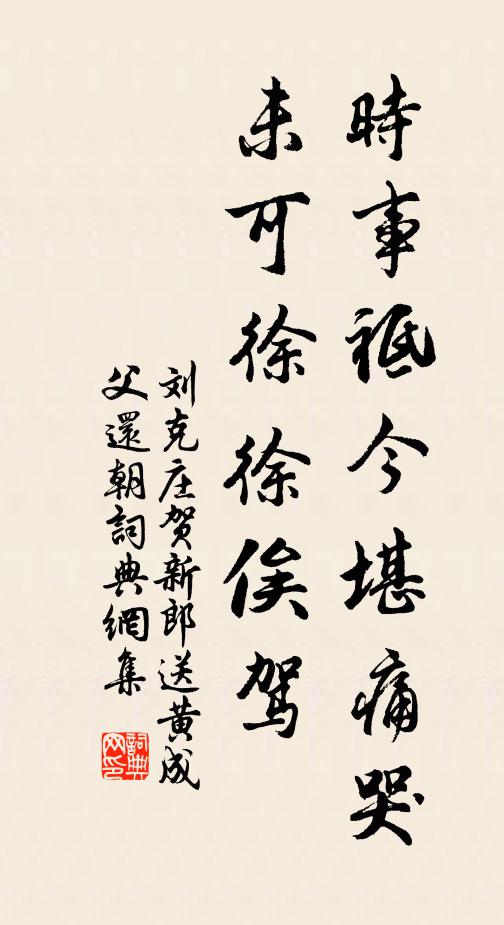 時事祗今堪痛哭
未可徐徐俟驾
刘克庄贺新郎送黄成
父還朝詞典網集
詞典
网印